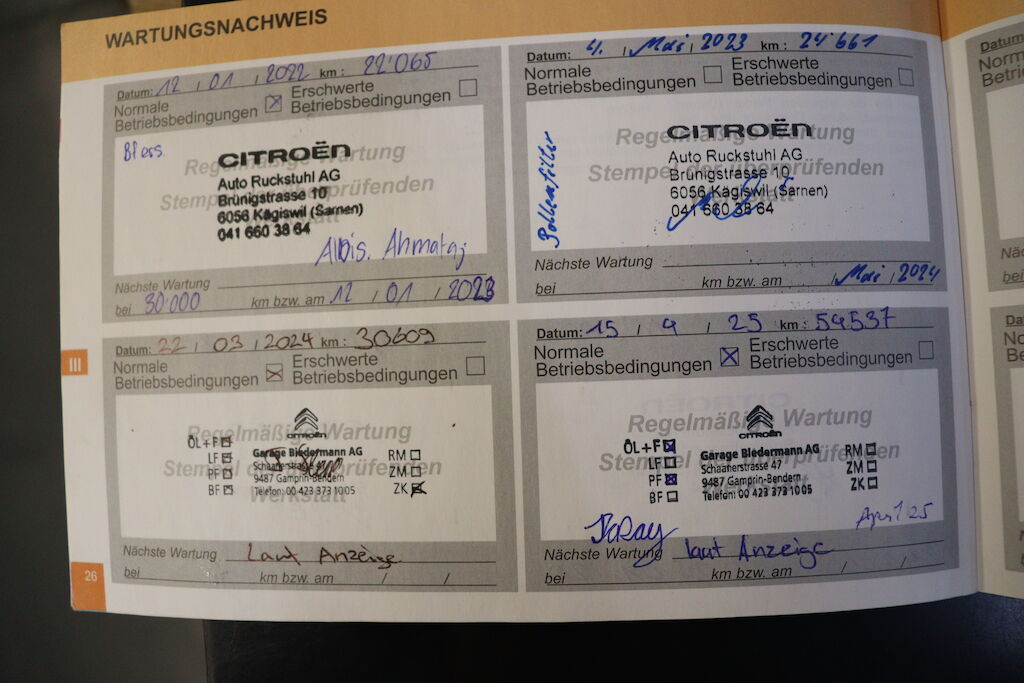 WARTUNGSNACHWEIS
Datum: 12 / 01 / 2022 km : 22'065
Normale Betriebsbedingungen ☒ Erschwerte Betriebsbedingungen ☐
Regelmäßige Wartung
Stempel der überprüfenden
CITROËN
Auto Ruckstuhl AG
Brünigstrasse 10
6056 Kägiswil (Sarnen)
041 660 38 64
Nächste Wartung
bei 30'000 km bzw. am 12 / 01 / 2023
Datum: 4. / Mai / 2023 km : 24'661
Normale Betriebsbedingungen ☐ Erschwerte Betriebsbedingungen ☐
Pollenfilter
Regelmäßige Wartung
Stempel der überprüfenden
CITROËN
Auto Ruckstuhl AG
Brünigstrasse 10
6056 Kägiswil (Sarnen)
041 660 38 64
Nächste Wartung
bei km bzw. am / Mai / 2024
III
Datum: 22 / 03 / 2024 km : 30609
Normale Betriebsbedingungen ☒ Erschwerte Betriebsbedingungen ☐
Regelmäßige Wartung
Stempel der überprüfenden
Werkstatt
CITROËN
ÖL+F ☒
LF ☒
PF ☒
BF ☒
Garage Biedermann AG
Schaanerstrasse 47
9487 Gamprin-Bendern
Telefon: 00 423 373 10 05
RM ☐
ZM ☐
ZK ☒
Nächste Wartung Laut Anzeige
bei km bzw. am / /
Datum: 15 / 9 / 25 km : 54537
Normale Betriebsbedingungen ☒ Erschwerte Betriebsbedingungen ☐
Regelmäßige Wartung
Stempel der überprüfenden
Werkstatt
CITROËN
ÖL+F ☒
LF ☐
PF ☒
BF ☐
Garage Biedermann AG
Schaanerstrasse 47
9487 Gamprin-Bendern
Telefon: 00 423 373 10 05
RM ☐
ZM ☐
ZK ☐
Nächste Wartung laut Anzeige
bei km bzw. am / /
26